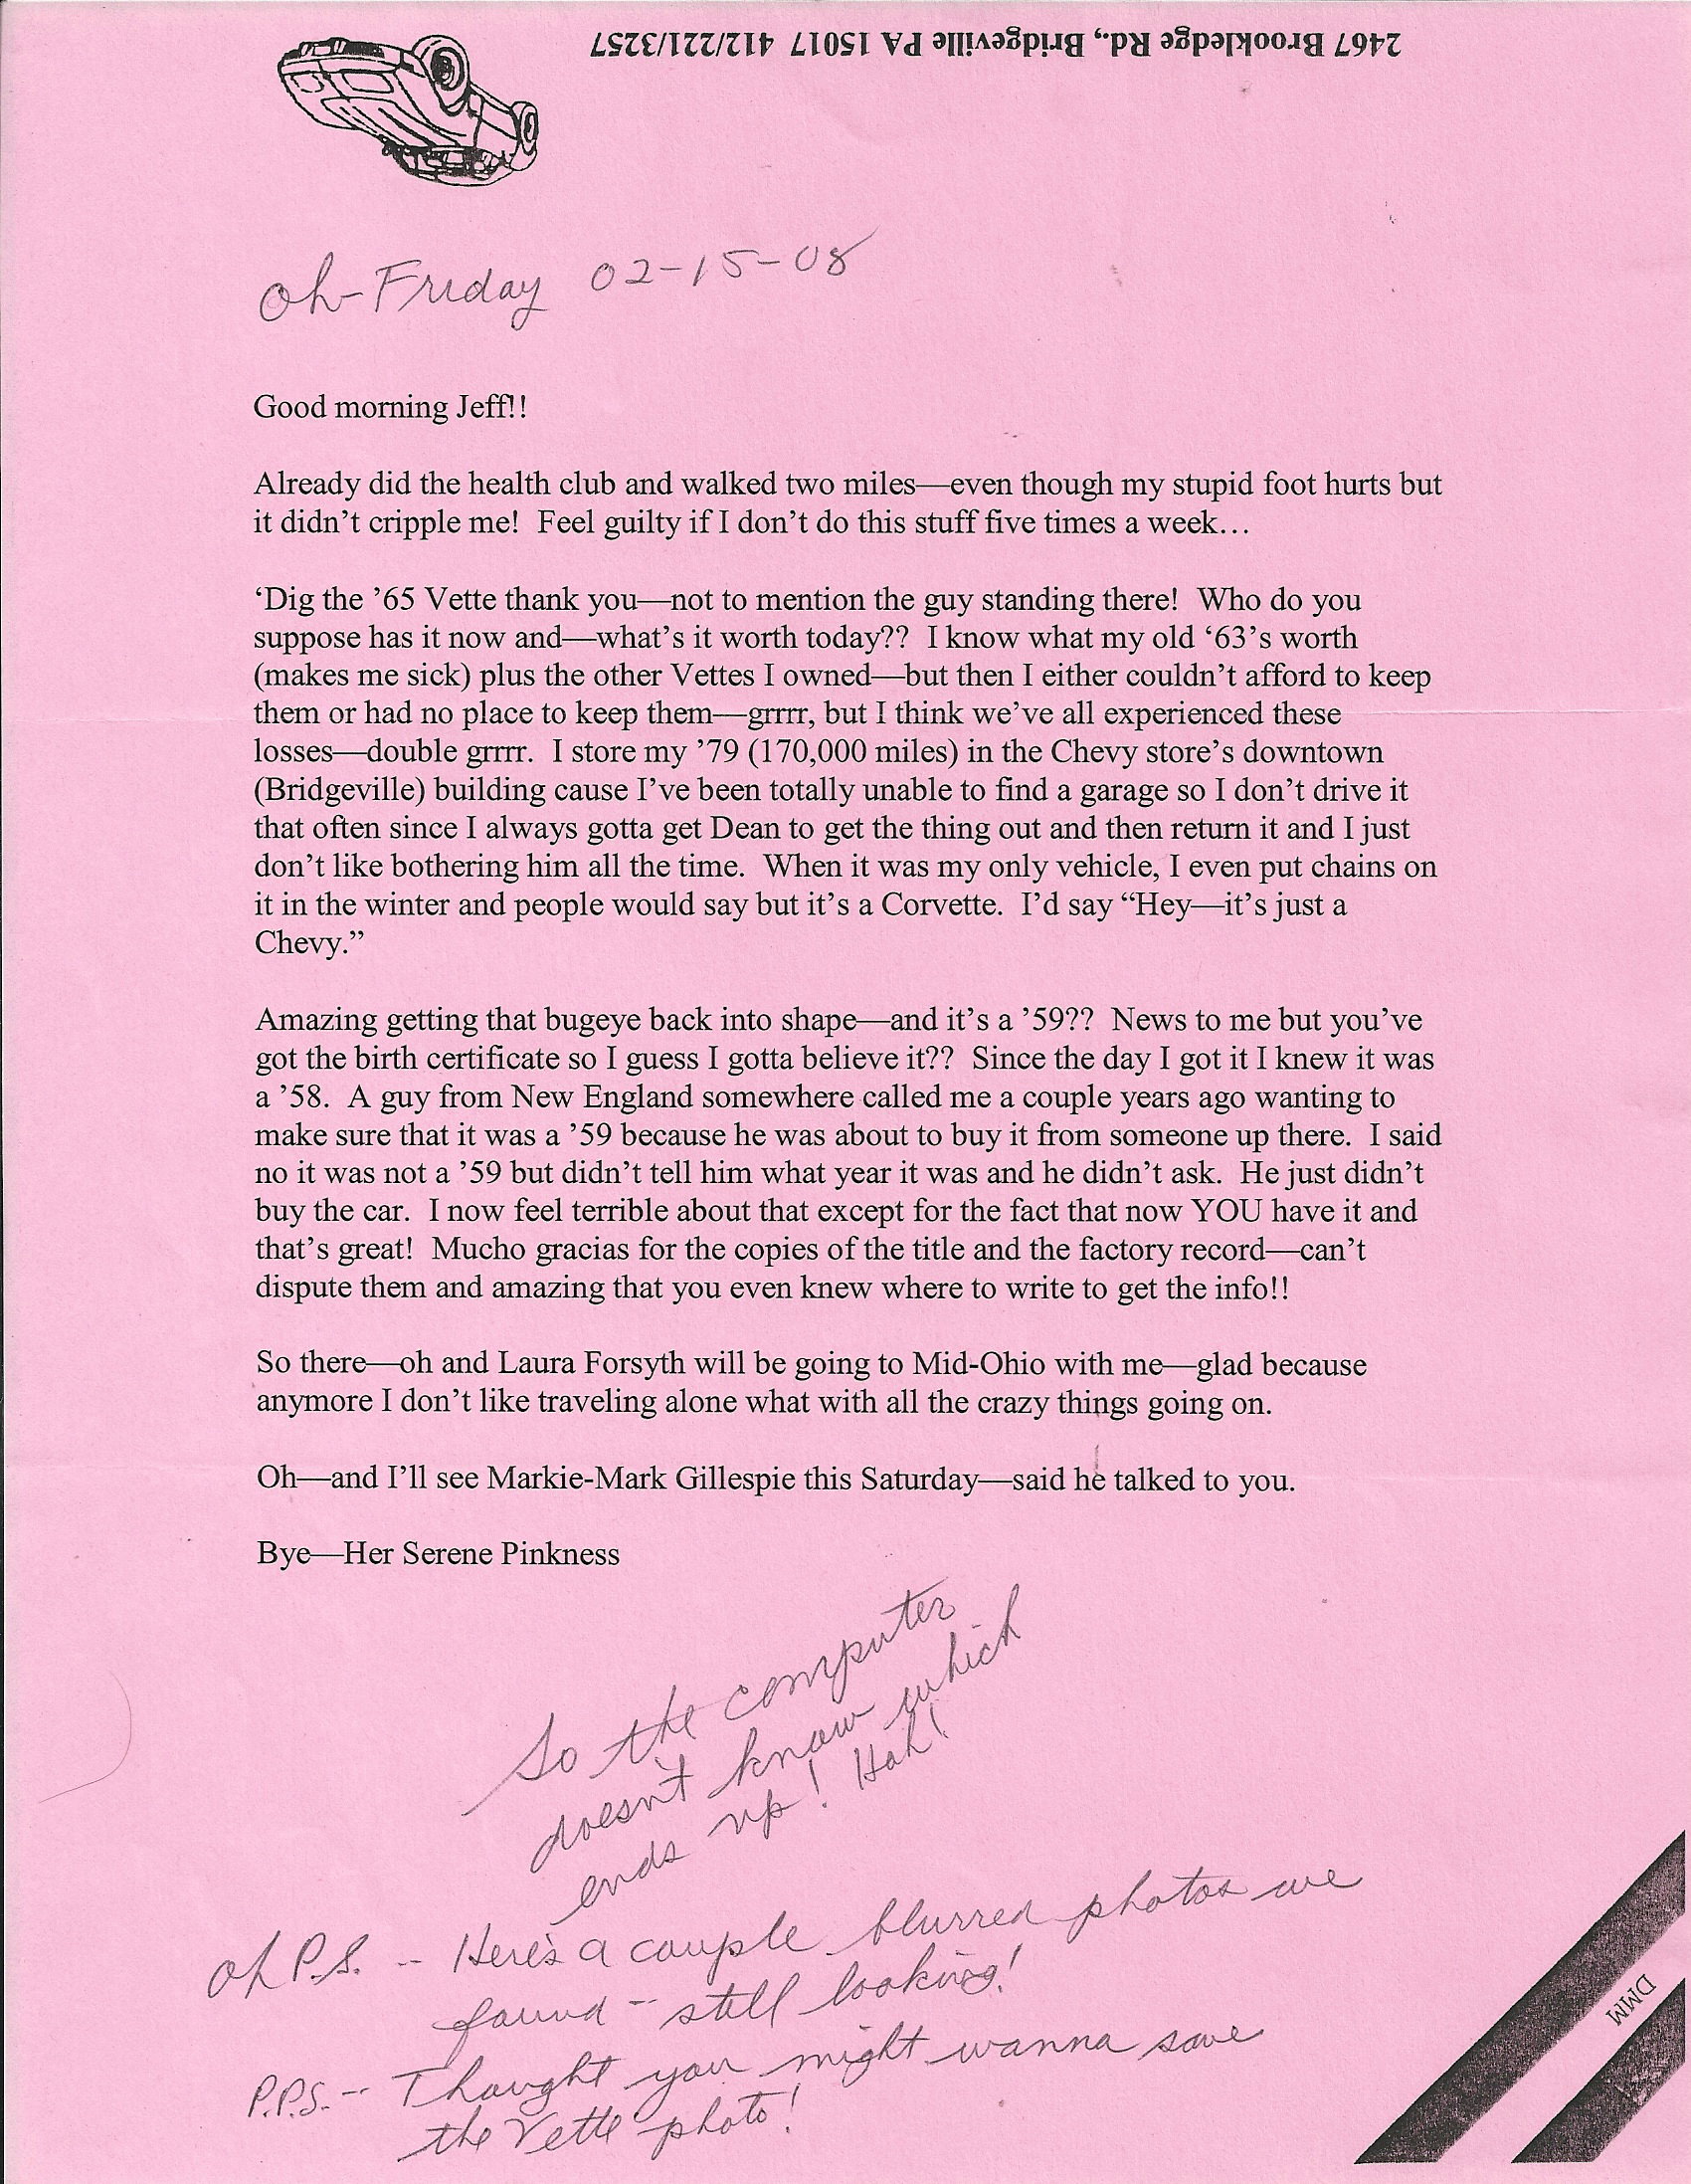 2467 Brookledge Rd., Bridgeville PA 15017 412/221/3257
Oh-Friday 02-15-08
Good morning Jeff!!
Already did the health club and walked two miles—even though my stupid foot hurts but
it didn’t cripple me!  Feel guilty if I don’t do this stuff five times a week…
‘Dig the ’65 Vette thank you—not to mention the guy standing there!  Who do you
suppose has it now and—what’s it worth today??  I know what my old ‘63’s worth
(makes me sick) plus the other Vettes I owned—but then I either couldn’t afford to keep
them or had no place to keep them—grrrr, but I think we’ve all experienced these
losses—double grrrr.  I store my ’79 (170,000 miles) in the Chevy store’s downtown
(Bridgeville) building cause I’ve been totally unable to find a garage so I don’t drive it
that often since I always gotta get Dean to get the thing out and then return it and I just
don’t like bothering him all the time.  When it was my only vehicle, I even put chains on
it in the winter and people would say but it’s a Corvette.  I’d say “Hey—it’s just a
Chevy.”
Amazing getting that bugeye back into shape—and it’s a ’59??  News to me but you’ve
got the birth certificate so I guess I gotta believe it??  Since the day I got it I knew it was
a ’58.  A guy from New England somewhere called me a couple years ago wanting to
make sure that it was a ’59 because he was about to buy it from someone up there.  I said
no it was not a ’59 but didn’t tell him what year it was and he didn’t ask.  He just didn’t
buy the car.  I now feel terrible about that except for the fact that now YOU have it and
that’s great!  Mucho gracias for the copies of the title and the factory record—can’t
dispute them and amazing that you even knew where to write to get the info!!
So there—oh and Laura Forsyth will be going to Mid-Ohio with me—glad because
anymore I don’t like traveling alone what with all the crazy things going on.
Oh—and I’ll see Markie-Mark Gillespie this Saturday—said he talked to you.
Bye—Her Serene Pinkness
So the computer
doesn't know which
ends up! Hah!
Oh P.S. -- Here's a couple blurred photos we
found -- still looking!
P.P.S. -- Thought you might wanna save
the Vette photo!
DMM